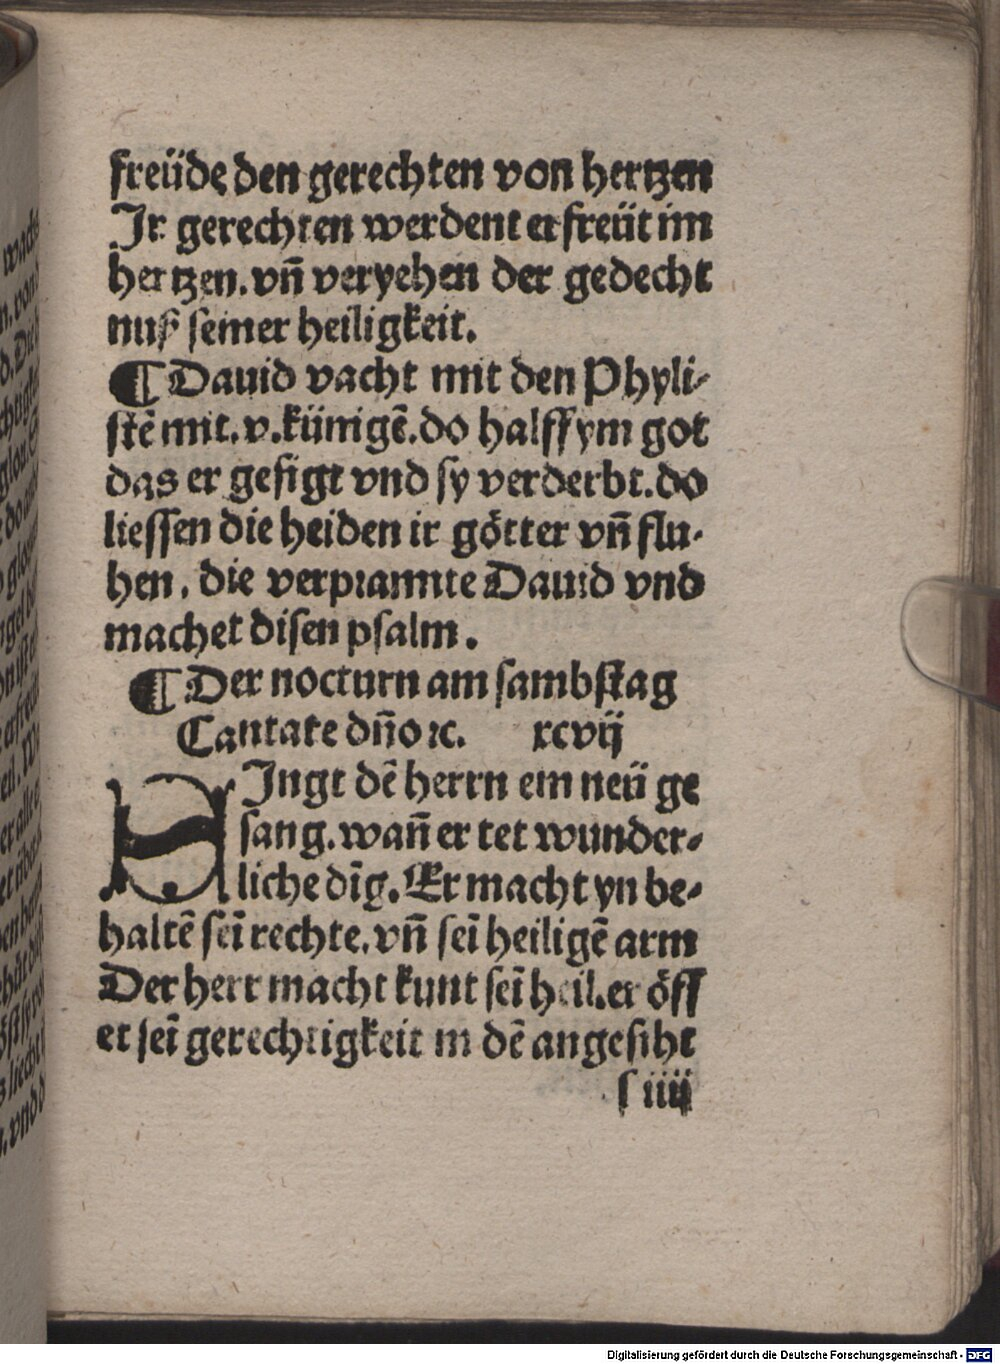 freüde den gerechten von hertzen
Jr gerechten werdent erfreüt im
hertzen. vñ veryehen der gedecht
nuß seiner heiligkeit.
¶ Dauid vacht mit den Phyli⸗
stē mit. v. künigē. do halff ym got
das er gesigt vnd sy verderbt. do
liessen die heiden ir götter vñ flu⸗
hen. die verprannte Dauid vnd
machet disen psalm.
¶ Der nocturn am sambstag
Cantate dño ⁊c. xcvij
SJngt dē herrn ein neü ge
sang. wañ er tet wunder⸗
liche dīg. Er macht yn be⸗
haltē seī rechte. vñ seī heiligē arm
Der herr macht kunt seī heil. er öff
et seī gerechtigkeit in dē angesiht
s iiij
Digitalisierung gefördert durch die Deutsche Forschungsgemeinschaft - DFG